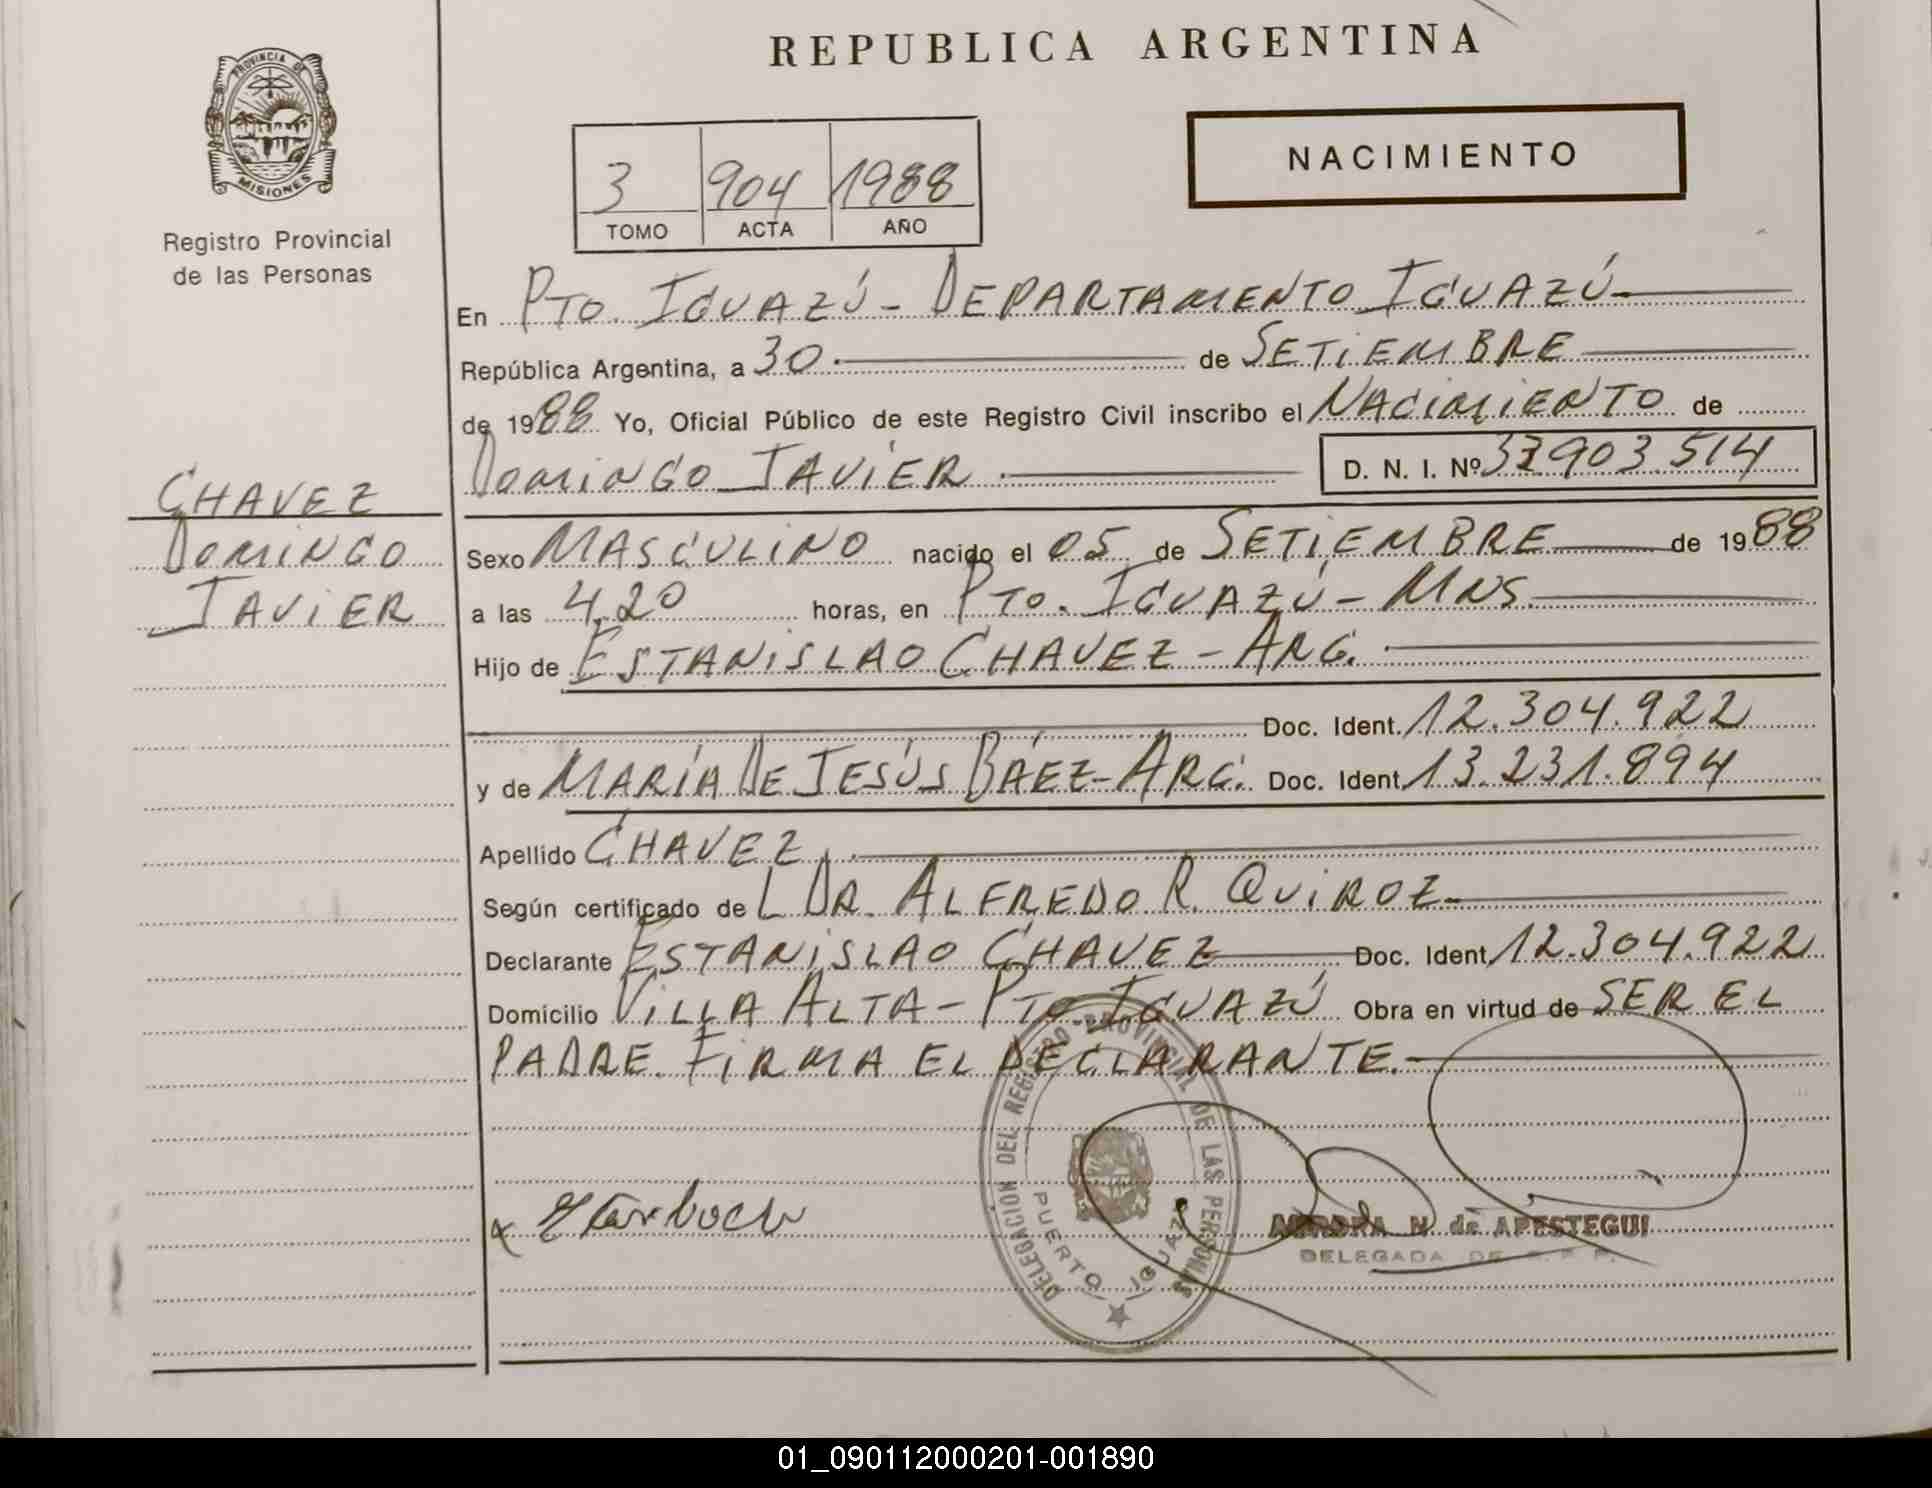 REPUBLICA ARGENTINA
PROVINCIA DE
MISIONES
Registro Provincial
de las Personas
NACIMIENTO
3 904 1988
TOMO ACTA AÑO
En PTO. IGUAZÚ - DEPARTAMENTO IGUAZÚ
República Argentina, a 30 de SETIEMBRE
de 1988 Yo, Oficial Público de este Registro Civil inscribo el NACIMIENTO de
DOMINGO JAVIER D. N. I. Nº 903.514
CHAVEZ
DOMINGO
JAVIER
Sexo MASCULINO nacido el 05 de SETIEMBRE de 1988
a las 4,20 horas, en PTO. IGUAZÚ - MNS.
Hijo de ESTANISLAO CHAVEZ - ARG.
Doc. Ident. 12.304.922
y de MARÍA DE JESÚS BÁEZ - ARG. Doc. Ident. 13.231.894
Apellido CHAVEZ
Según certificado de L DR. ALFREDO R. QUIROZ
Declarante ESTANISLAO CHAVEZ Doc. Ident. 12.304.922
Domicilio VILLA ALTA - PTO IGUAZÚ Obra en virtud de SER EL
PADRE. FIRMA EL DECLARANTE.
DELEGACION DEL REGISTRO PROVINCIAL DE LAS PERSONAS
PUERTO IGUAZU
N de APESTEGUI
DELEGADA DE
01_090112000201-001890